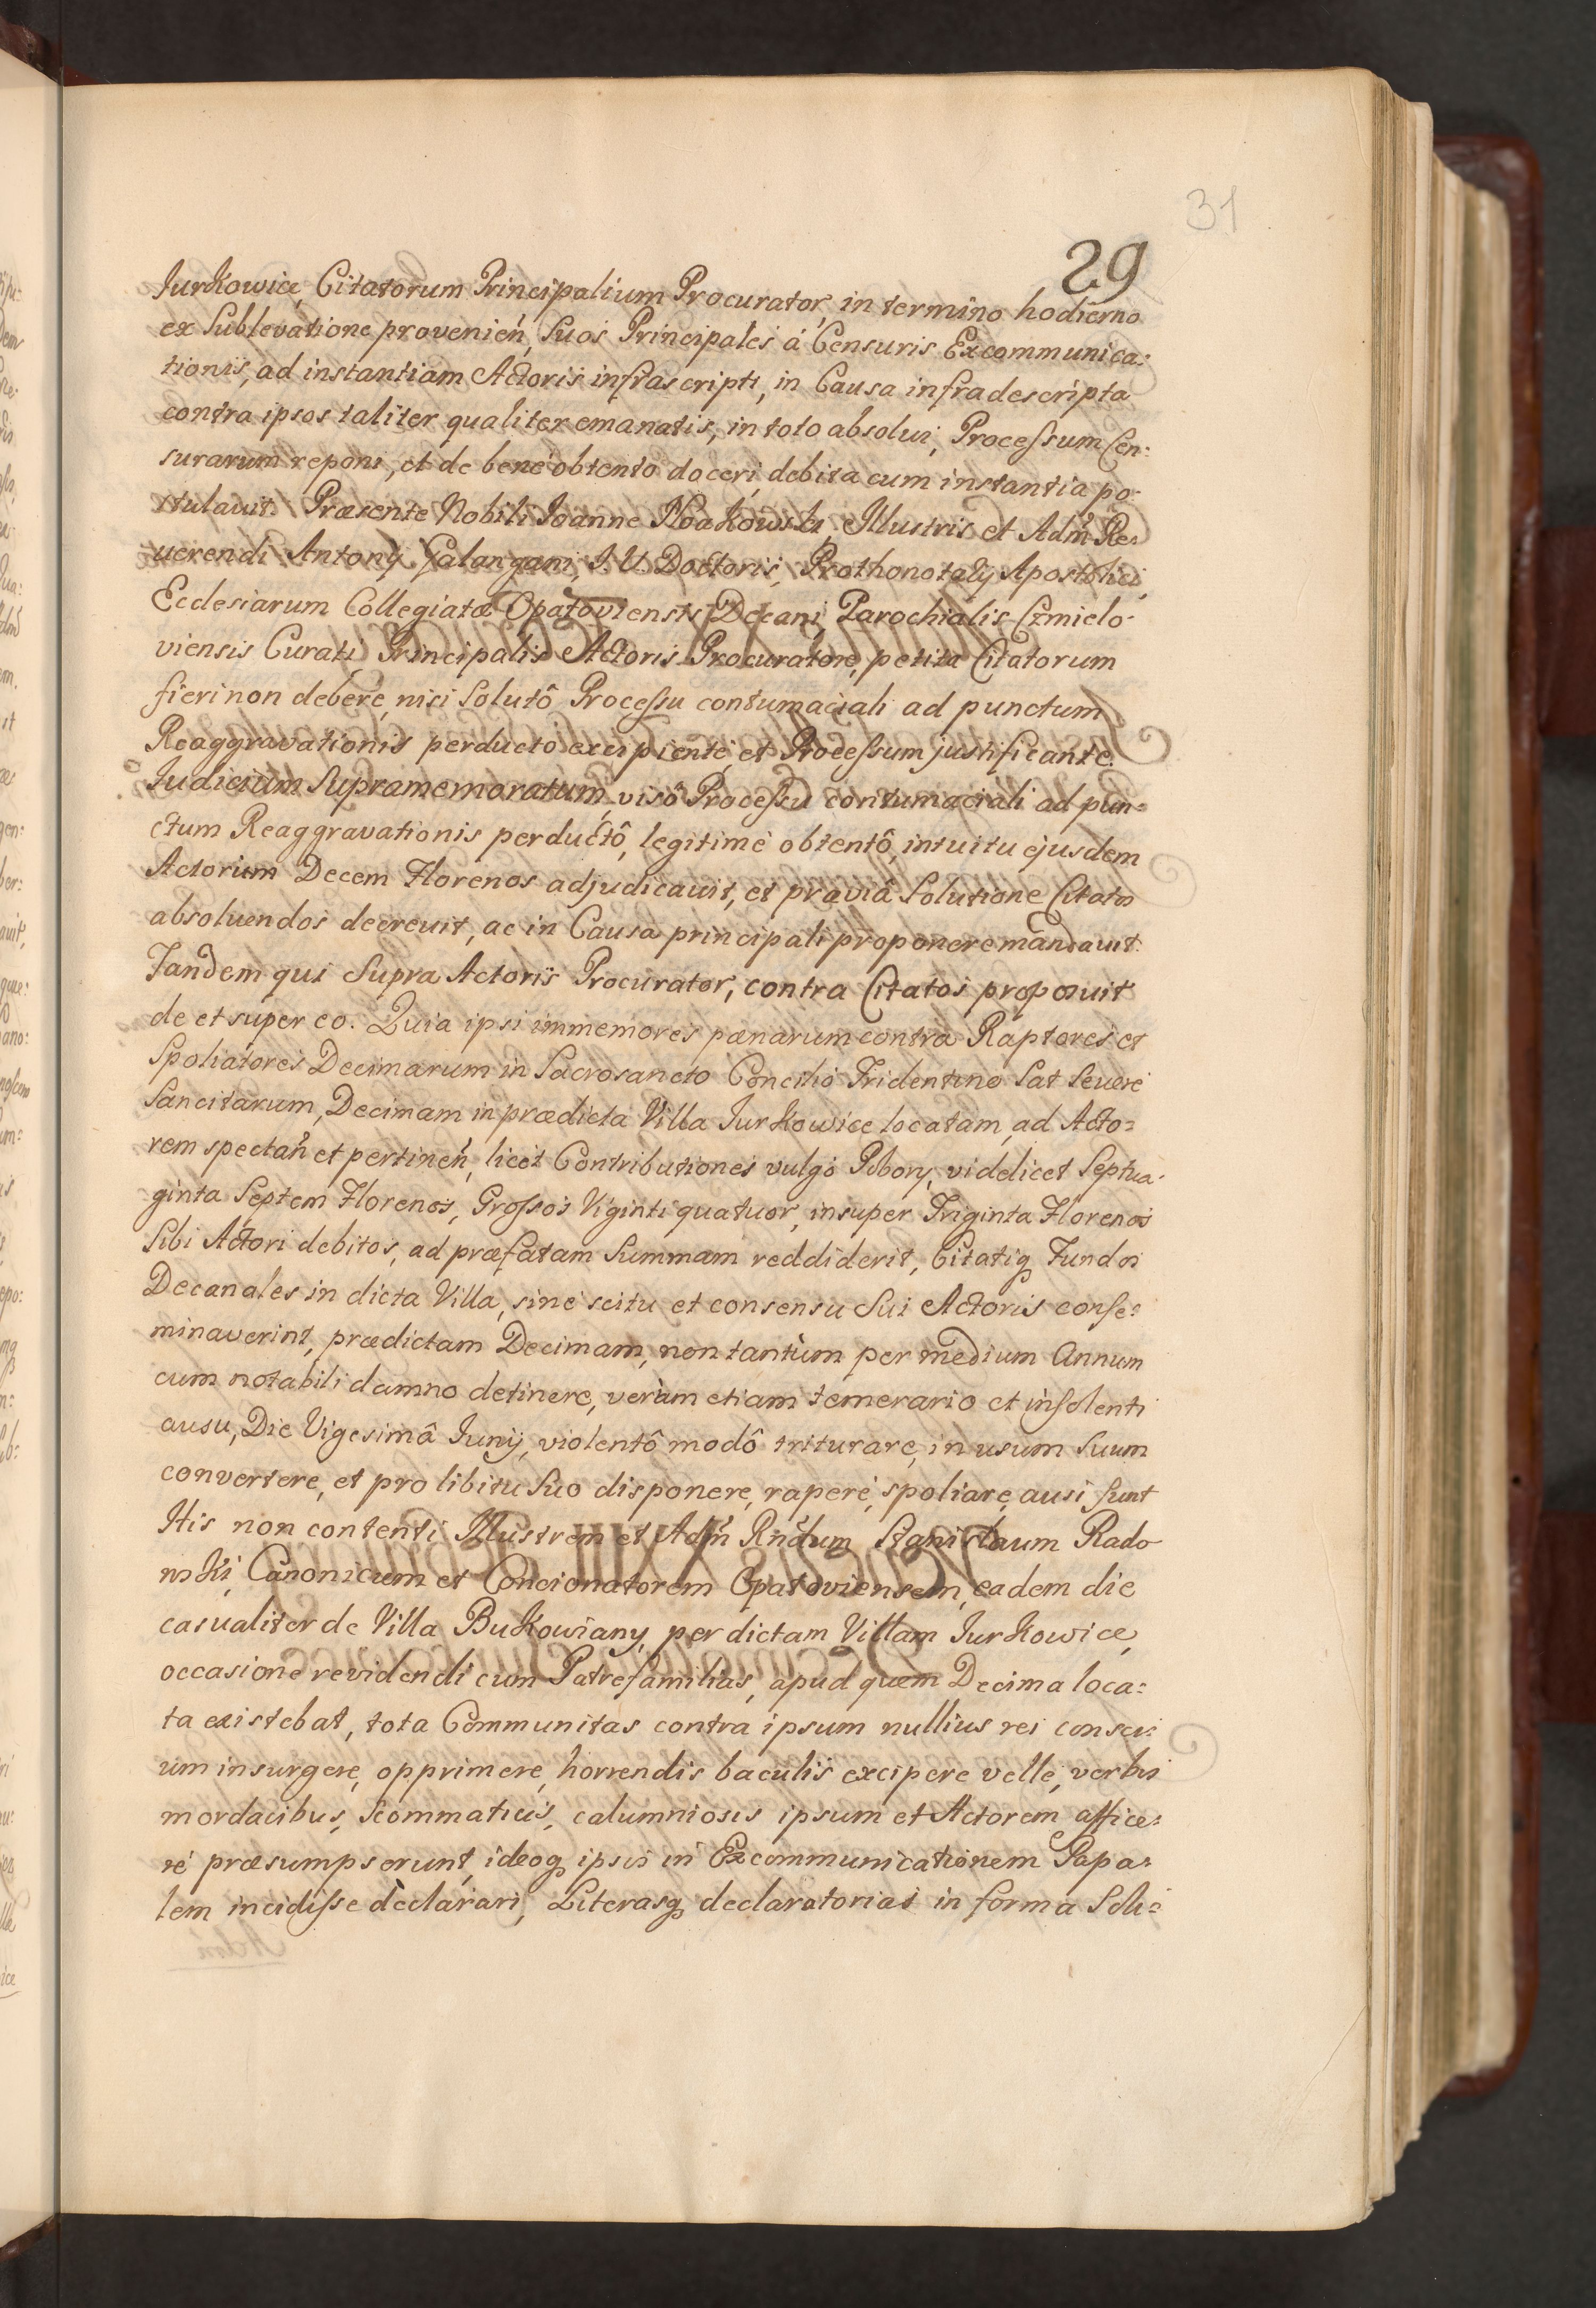 31
29
Jurkowice, Citatorum Principalium Procurator, in termino hodierno
ex Sublevatione provenień, Suos Principales á Censuris Excommunica:
tionis, ad instantiam Actoris infrascripti, in Causa infradescripta
contra ipsos taliter qualiter emanatis, in toto absolui, Processum Cen:
surarum reponi, et de bene obtento doceri, debita cum instantia po:
stulauit. Præsente Nobili Joanne Kłoakowski, Illustris et Adm̃ Re:
uerendi Antonÿ Galangani, I. U. Doctoris, Prothonotarÿ Apostolici,
Ecclesiarum Collegiatæ Opatoviensis Decani, Parochialis Czmielo:
viensis Curati Principalis Actoris Procuratore, petita Citatorum
fieri non debere, nisi Solutô Processu contumaciali ad punctum
Reaggravationis perducto excipiente, et Processum justificante.
Judicium Supramemoratum, visô Processu contumaciali ad pun=
ctum Reaggravationis perductô, legitime obtentô, intuitu ejusdem
Actorium Decem Florenos adjudicavit, et præviâ Solutione Citatos
absoluendos decreuit, ac in Causa principali proponere mandauit.
Tandem qui Supra Actoris Procurator, contra Citatos proposuit
de et super eo. Quia ipsi immemores pœnarum contra Raptores et
Spoliatores Decimarum in Sacrosancto Concilio Tridentino Sat Severe
Sancitarum, Decimam in prædicta Villa Jurkowice locatam, ad Acto=
rem spectań et pertineń, licet Contributiones vulgo Pobory, videlicet Septua:
ginta Septem Florenos, Grossos Viginti quatuor, insuper Triginta Florenos
Sibi Actori debitos, ad præfatam Summam reddiderit, Citatiq Fundos
Decanales in dicta Villa, sine scitu et consensu Sui Actoris conse:
minaverint, prædictam Decimam, non tantùm per medium Annum
cum notabili damno detinere, verùm etiam temerario et insolenti
ausu, Die Vigesimâ Junÿ, violentô modô triturare, in usum Suum
convertere, et pro libitu Suo disponere, rapere, spoliare, ausi sunt
His non contenti Illustrem et Adm̃ Rńdum Stanislaum Rado
nski, Canonicum et Concionatorem Opatoviensem, eadem die
casualiter de Villa Bukowiany, per dictam Villam Jurkowice,
occasione revidendi cum Patrefamilias, apud quem Decima loca:
ta existebat, tota Communitas contra ipsum nullius rei consci:
um insurgere, opprimere, horrendis baculis excipere velle, verbis
mordacibus, Scommaticis, calumniosis ipsum et Actorem affice:
re præsumpserunt, ideoq ipsos in Excommunicationem Papa:
lem incidisse declarari, Literasq declaratorias in forma Soli=